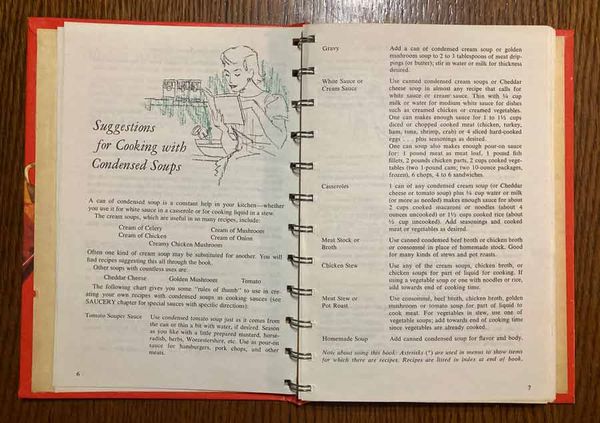 Suggestions
for Cooking with
Condensed Soups
A can of condensed soup is a constant help in your kitchen—whether
you use it for white sauce in a casserole or for cooking liquid in a stew.
The cream soups, which are useful in so many recipes, include:
Cream of Celery Cream of Mushroom
Cream of Chicken Cream of Onion
Creamy Chicken Mushroom
Often one kind of cream soup may be substituted for another. You will
find recipes suggesting this all through the book.
Other soups with countless uses are:
Cheddar Cheese Golden Mushroom Tomato
The following chart gives you some "rules of thumb" to use in cre-
ating your own recipes with condensed soups as cooking sauces (see
SAUCERY chapter for special sauces with specific directions):
Tomato Souper Sauce Use condensed tomato soup just as it comes from
the can or thin a bit with water, if desired. Season
as you like with a little prepared mustard, horse-
radish, herbs, Worcestershire, etc. Use as pour-on
sauce for hamburgers, pork chops, and other
meats.
6
Gravy Add a can of condensed cream soup or golden
mushroom soup to 2 to 3 tablespoons of meat drip-
pings (or butter); stir in water or milk for thickness
desired.
White Sauce or Use canned condensed cream soups or Cheddar
Cream Sauce cheese soup in almost any recipe that calls for
white sauce or cream sauce. Thin with ¼ cup
milk or water for medium white sauce for dishes
such as creamed chicken or creamed vegetables.
One can makes enough sauce for 1 to 1½ cups
diced or chopped cooked meat (chicken, turkey,
ham, tuna, shrimp, crab) or 4 sliced hard-cooked
eggs . . . plus seasonings as desired.
One can soup also makes enough pour-on sauce
for: 1 pound meat as meat loaf, 1 pound fish
fillets, 2 pounds chicken parts, 2 cups cooked vege-
tables (two 1-pound cans; two 10-ounce packages,
frozen), 6 chops, 4 to 6 sandwiches.
Casseroles 1 can of any condensed cream soup (or Cheddar
cheese or tomato soup) plus ¼ cup water or milk
(or more as needed) makes enough sauce for about
2 cups cooked macaroni or noodles (about 4
ounces uncooked) or 1½ cups cooked rice (about
½ cup uncooked). Add seasonings and cooked
meat or vegetables as desired.
Meat Stock or Use canned condensed beef broth or chicken broth
Broth or consommé in place of homemade stock. Good
for many kinds of stews and pot roasts.
Chicken Stew Use any of the cream soups, chicken broth, or
chicken soups for part of liquid for cooking. If
using a vegetable soup or one with noodles or rice,
add towards end of cooking time.
Meat Stew or Use consommé, beef broth, chicken broth, golden
Pot Roast mushroom or tomato soup for part of liquid to
cook meat. For vegetables in stew, use one of
vegetable soups; add towards end of cooking time
since vegetables are already cooked.
Homemade Soup Add canned condensed soup for flavor and body.
Note about using this book: Asterisks (*) are used in menus to show items
for which there are recipes. Recipes are listed in index at end of book.
7